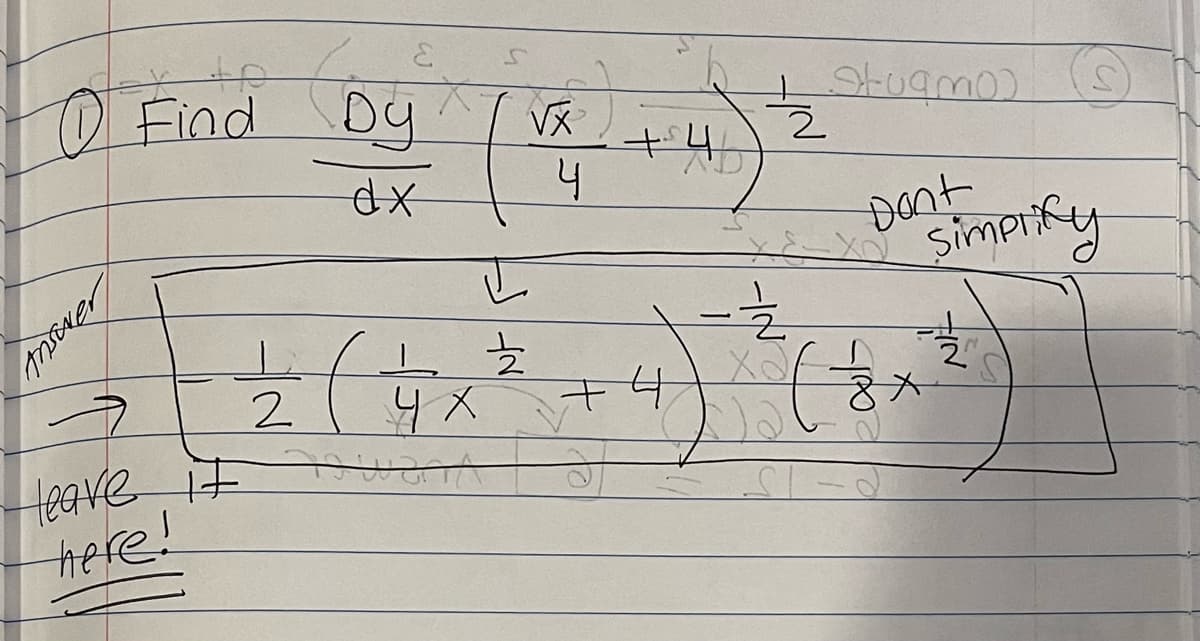 ① Find Dy/dx (√x/4 + 4)^1/2
Dont
simplify
↓
Answer → - 1/2 (1/4 x^1/2 + 4)^-1/2 (1/8 x^-1/2)
leave it
here!